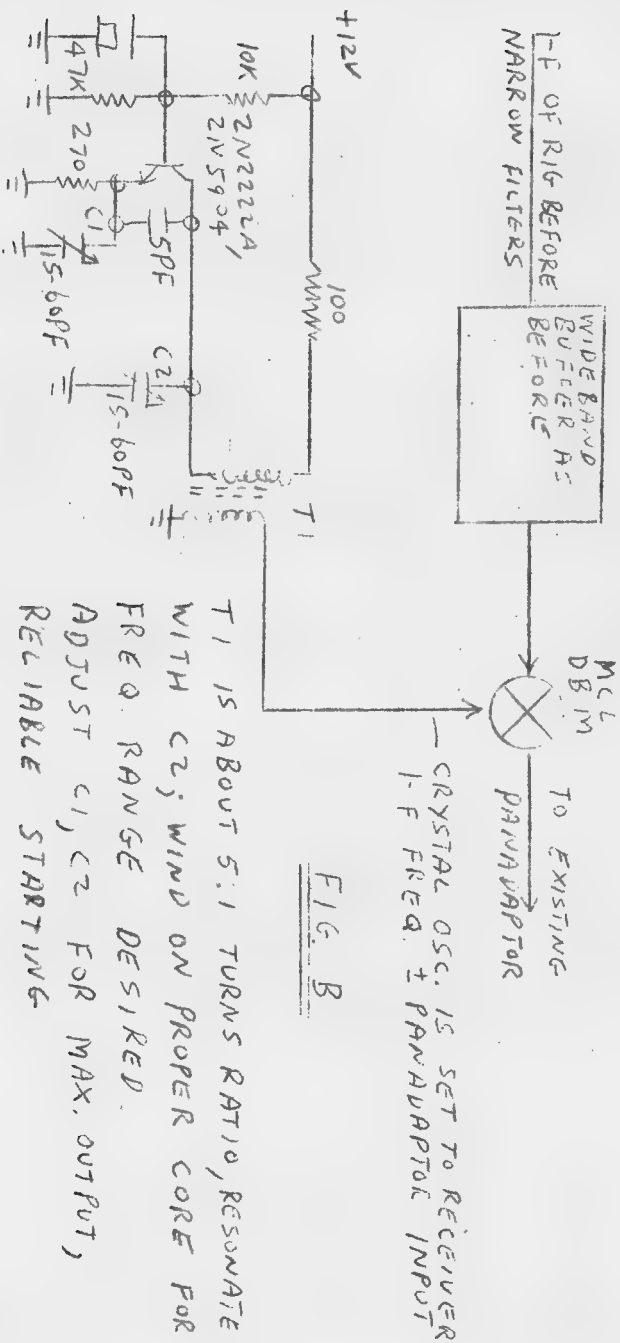 I-F OF RIG BEFORE
NARROW FILTERS
WIDEBAND
BUFFER AS
BEFORE
MCL
DBM
TO EXISTING
PANAVAPTOR
CRYSTAL OSC. IS SET TO RECEIVER
I-F FREQ. ± PANAVAPTOR INPUT
+12V
100
10K
2N2222A,
2N5904
47K
270
C1
5PF
15-60PF
C2
15-60PF
T1
FIG. B
T1 IS ABOUT 5:1 TURNS RATIO, RESONATE
WITH C2; WIND ON PROPER CORE FOR
FREQ. RANGE DESIRED.
ADJUST C1, C2 FOR MAX. OUTPUT,
RELIABLE STARTING